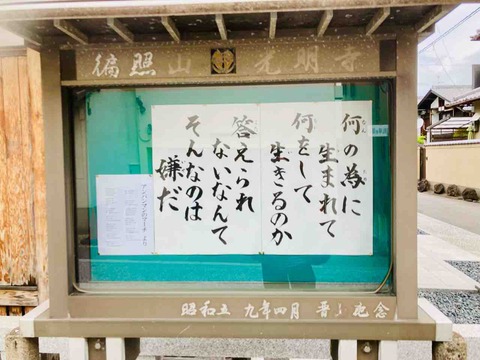 徧照山 光明寺
何の為に
生まれて
何をして
生きるのか
答えられ
ないなんて
そんなのは
嫌だ
アンパンマンのマーチ より
昭和五九年四月 晋山記念